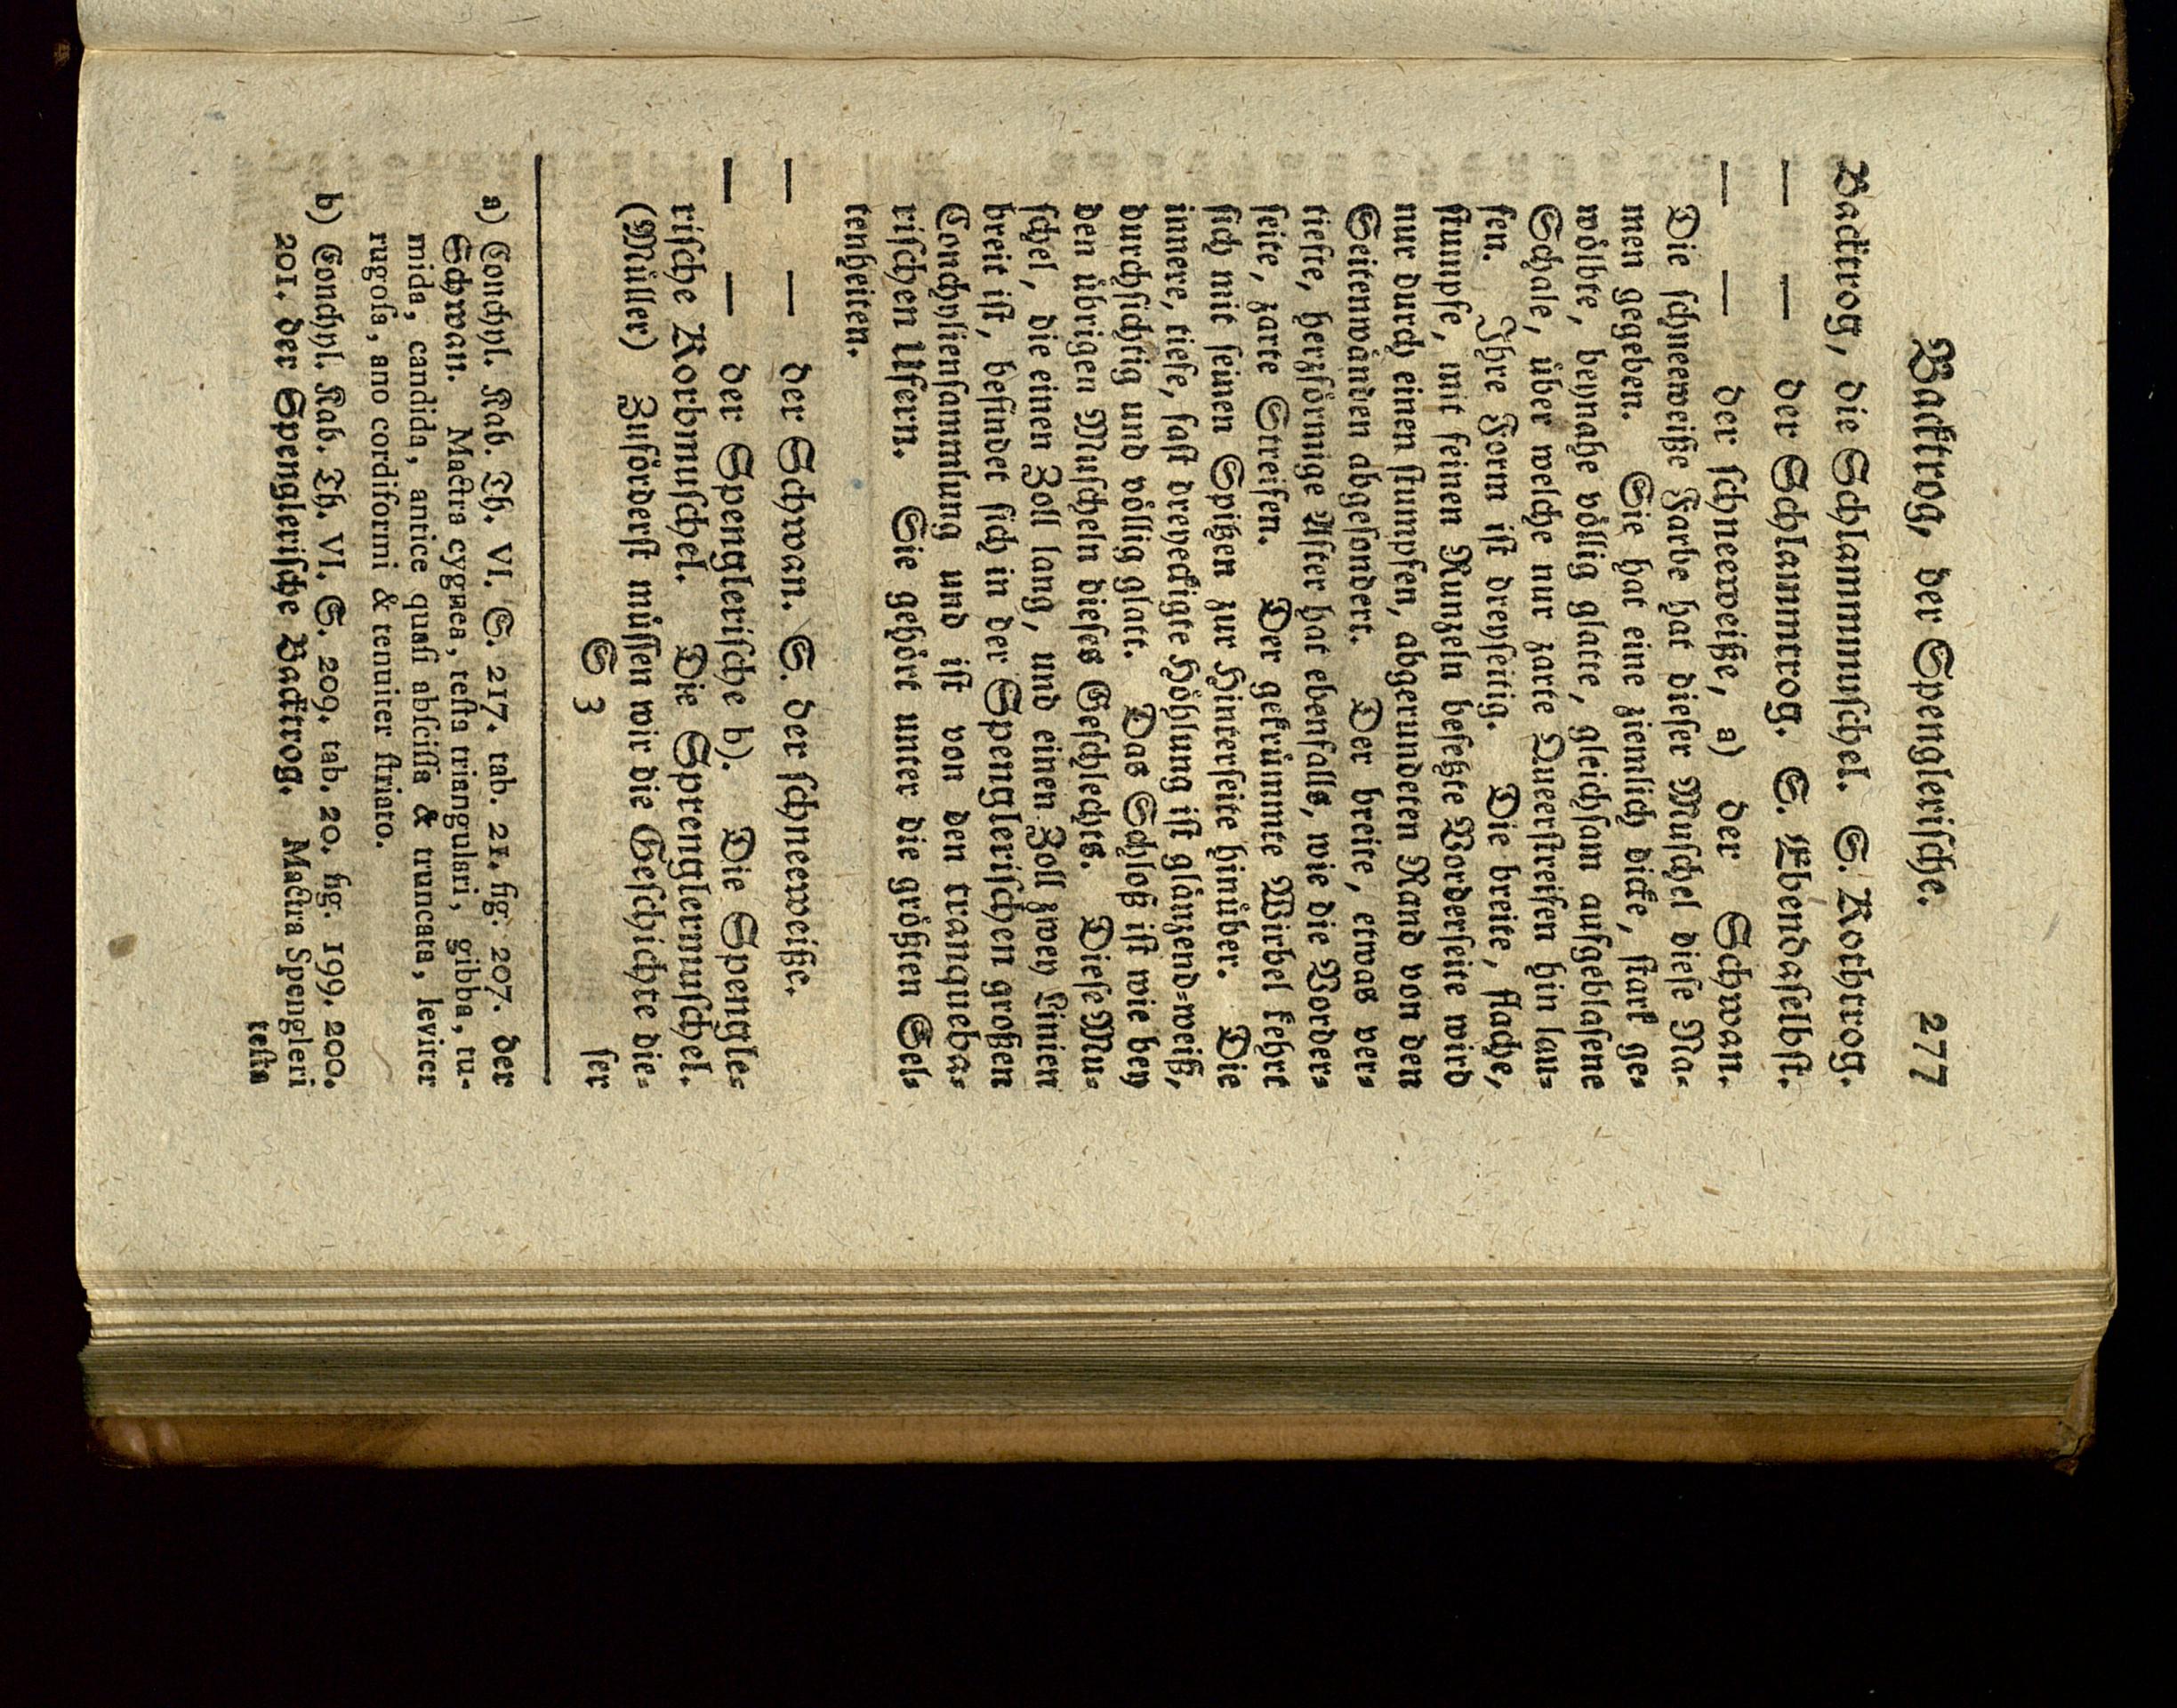 Backtrog, der Spenglerische. 277
Backtrog, die Schlammmuschel. S. Kothtrog.
— — der Schlammtrog. S. Ebendaselbst.
— — der schneeweiße, a) der Schwan.
Die schneeweiße Farbe hat dieser Muschel diese Na-
men gegeben. Sie hat eine ziemlich dicke, stark ge-
wölbte, beynahe völlig glatte, gleichsam aufgeblasene
Schale, über welche nur zarte Queerstreifen hin lau-
fen. Ihre Form ist dreyseitig. Die breite, flache,
stumpfe, mit feinen Runzeln besetzte Vorderseite wird
nur durch einen stumpfen, abgerundeten Rand von den
Seitenwänden abgesondert. Der breite, etwas ver-
tiefte, herzförmige After hat ebenfalls, wie die Vorder-
seite, zarte Streifen. Der gekrümmte Wirbel kehrt
sich mit seinen Spitzen zur Hinterseite hinüber. Die
innere, tiefe, fast dreyeckigte Höhlung ist glänzend-weiß,
durchsichtig und völlig glatt. Das Schloß ist wie bey
den übrigen Muscheln dieses Geschlechts. Diese Mu-
schel, die einen Zoll lang, und einen Zoll zwey Linien
breit ist, befindet sich in der Spenglerischen großen
Conchyliensammlung und ist von den tranqueba-
rischen Ufern. Sie gehört unter die größten Sel-
tenheiten.
— — der Schwan. S. der schneeweiße.
— — der Spenglerische b). Die Spengle-
rische Korbmuschel. Die Sprenglermuschel.
(Müller) Zuförderst müssen wir die Geschichte die-
S 3 ser
a) Conchyl. Kab. Th. VI. S. 217. tab. 21. fig. 207. der
Schwan. Mactra cygnea, testa triangulari, gibba, tu-
mida, candida, antice quasi abscissa & truncata, leviter
rugosa, ano cordiformi & tenuiter striato.
b) Conchyl. Kab. Th. VI. S. 209. tab. 20. fig. 199. 200.
201. der Spenglerische Backtrog. Mactra Spengleri
testa